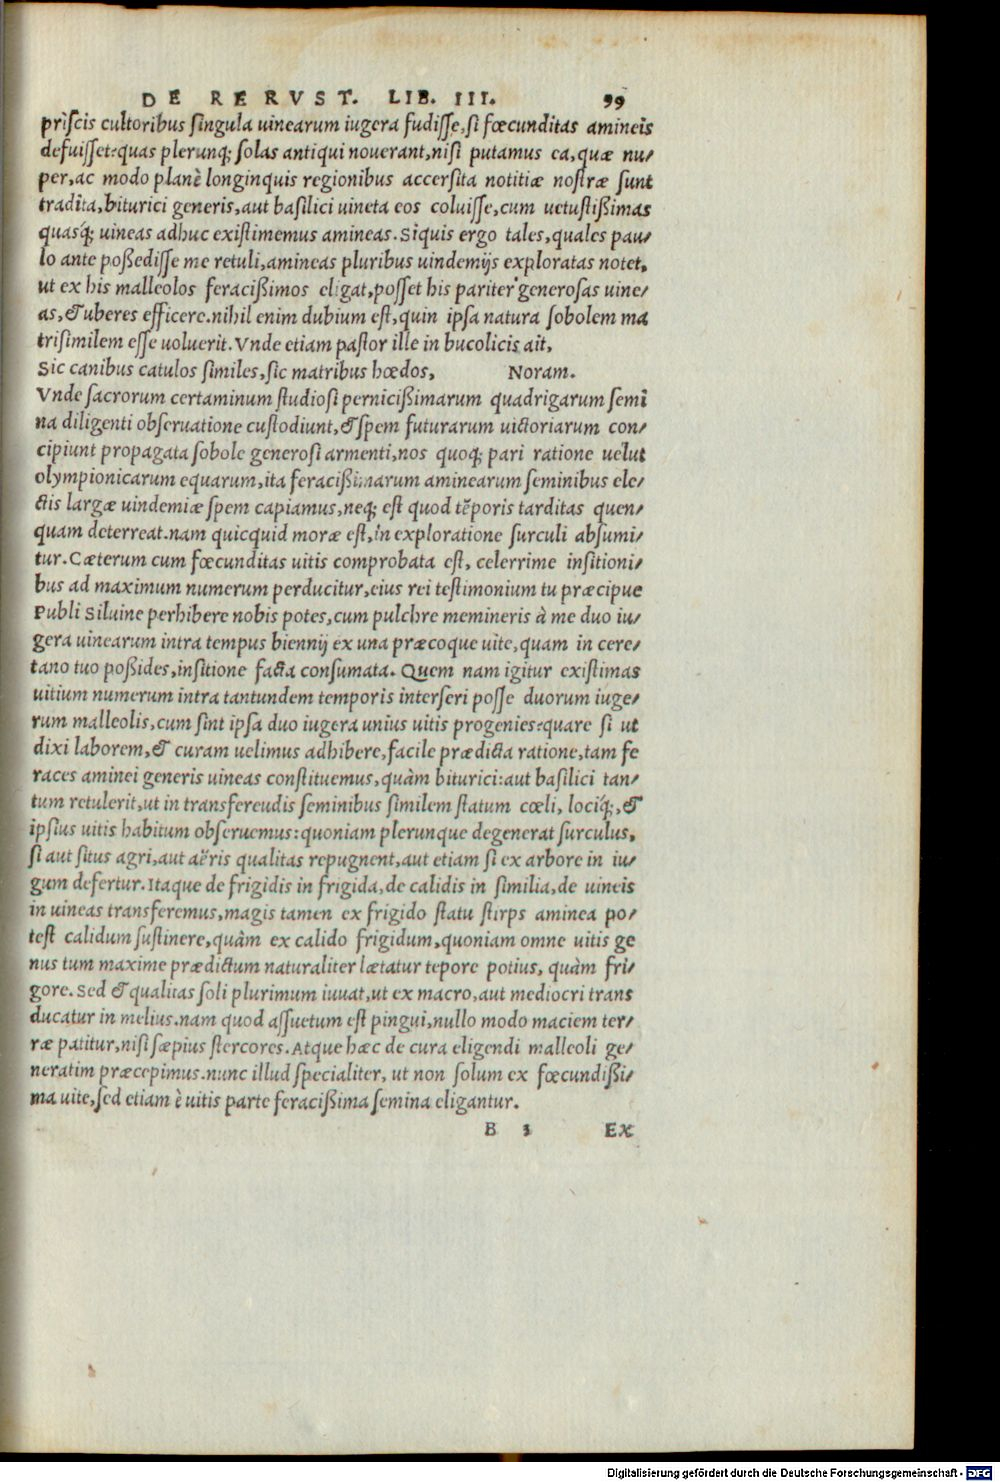 DE RE RVST. LIB. III. 99
priscis cultoribus singula uinearum iugera fudisse, si fœcunditas amineis
defuisset? quas plerunq; solas antiqui nouerant, nisi putamus ea, quæ nu/
per, ac modo planè longinquis regionibus accersita notitiæ nostræ sunt
tradita, biturici generis, aut basilici uineta eos coluisse, cum uetustißimas
quasq́; uineas adhuc existimemus amineas. Siquis ergo tales, quales pau/
lo ante poßedisse me retuli, amineas pluribus uindemijs exploratas notet,
ut ex his malleolos feracißimos eligat, posset his pariter generosas uine/
as, & uberes efficere. nihil enim dubium est, quin ipsa natura sobolem ma
tri similem esse uoluerit. Vnde etiam pastor ille in bucolicis ait,
Sic canibus catulos similes, sic matribus hœdos, Noram.
Vnde sacrorum certaminum studiosi pernicißimarum quadrigarum semi
na diligenti obseruatione custodiunt, & spem futurarum uictoriarum con/
cipiunt propagata sobole generosi armenti, nos quoq; pari ratione uelut
olympionicarum equarum, ita feracißimarum aminearum seminibus ele/
ctis largæ uindemiæ spem capiamus, neq; est quod tẽporis tarditas quen/
quam deterreat. nam quicquid moræ est, in exploratione surculi absumi/
tur. Cæterum cum fœcunditas uitis comprobata est, celerrime insitioni/
bus ad maximum numerum perducitur, eius rei testimonium tu præcipue
Publi Siluine perhibere nobis potes, cum pulchre memineris à me duo iu/
gera uinearum intra tempus biennij ex una præcoque uite, quam in cere/
tano tuo poßides, insitione facta consumata. Quem nam igitur existimas
uitium numerum intra tantundem temporis interseri posse duorum iuge/
rum malleolis, cum sint ipsa duo iugera unius uitis progenies? quare si ut
dixi laborem, & curam uelimus adhibere, facile prædicta ratione, tam fe
races aminei generis uineas constituemus, quàm biturici: aut basilici tan/
tum retulerit, ut in transferendis seminibus similem statum cœli, lociq́;, &
ipsius uitis habitum obseruemus: quoniam plerunque degenerat surculus,
si aut situs agri, aut aëris qualitas repugnent, aut etiam si ex arbore in iu/
gum defertur. Itaque de frigidis in frigida, de calidis in similia, de uineis
in uineas transferemus, magis tamen ex frigido statu stirps aminea po/
test calidum sustinere, quàm ex calido frigidum, quoniam omne uitis ge
nus tum maxime prædictum naturaliter lætatur tepore potius, quàm fri/
gore. Sed & qualitas soli plurimum iuuat, ut ex macro, aut mediocri trans
ducatur in melius. nam quod assuetum est pingui, nullo modo maciem ter/
ræ patitur, nisi sæpius stercores. Atque hæc de cura eligendi malleoli ge/
neratim præcepimus. nunc illud specialiter, ut non solum ex fœcundißi/
ma uite, sed etiam è uitis parte feracißima semina eligantur.
B 3 EX
Digitalisierung gefördert durch die Deutsche Forschungsgemeinschaft - DFG